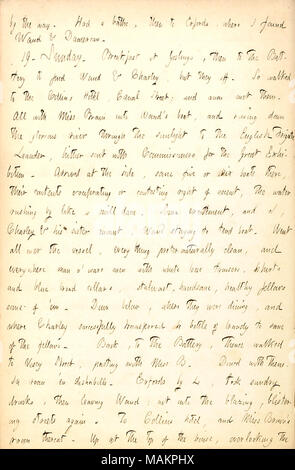 by the way. Had a bathe, then to Erfords, where I found
Waud & Damoreau.
19. Sunday. Breakfast at Goslings, then to the Bat-
tery to find Waud & Charley, but they off. So walked
to the Collins Hotel, Canal Street, and anon met them.
All with Miss Brown into Waud's boat, and rowing down
the glorious river through the sunlight to the English Frigate
Leander, hither sent with Commissioners for the Great Exhi-
bition. Arrived at the side, some five or six boats there,
their contents vociferating or contesting right of ascent, the water
rushing by like a mill dam. Some excitement, and I,
Charley & his sister mount, Waud staying to tend boat. Went
all over the vessel, everything preternaturally clean, and
everywhere man o' wars men with white low trousers, shirts
and blue round collars, stalwart, handsome, healthy fellows
some of 'em. Down below, where they were dining, and
where Charley successfully transferred his bottle of brandy to some
of the fellows. Back, to the Battery, thence walked
to Vesey Street, parting with Miss B. Dined with them.
room in dishabille. Erfords by 4, took sundry
drinks, then leaving Waud, out into the blazing, blister-
ing streets again. To Collins Hotel, and Miss Brown's
room thereat. Up at the top of the house, overlooking the
alamy
MAKPHX